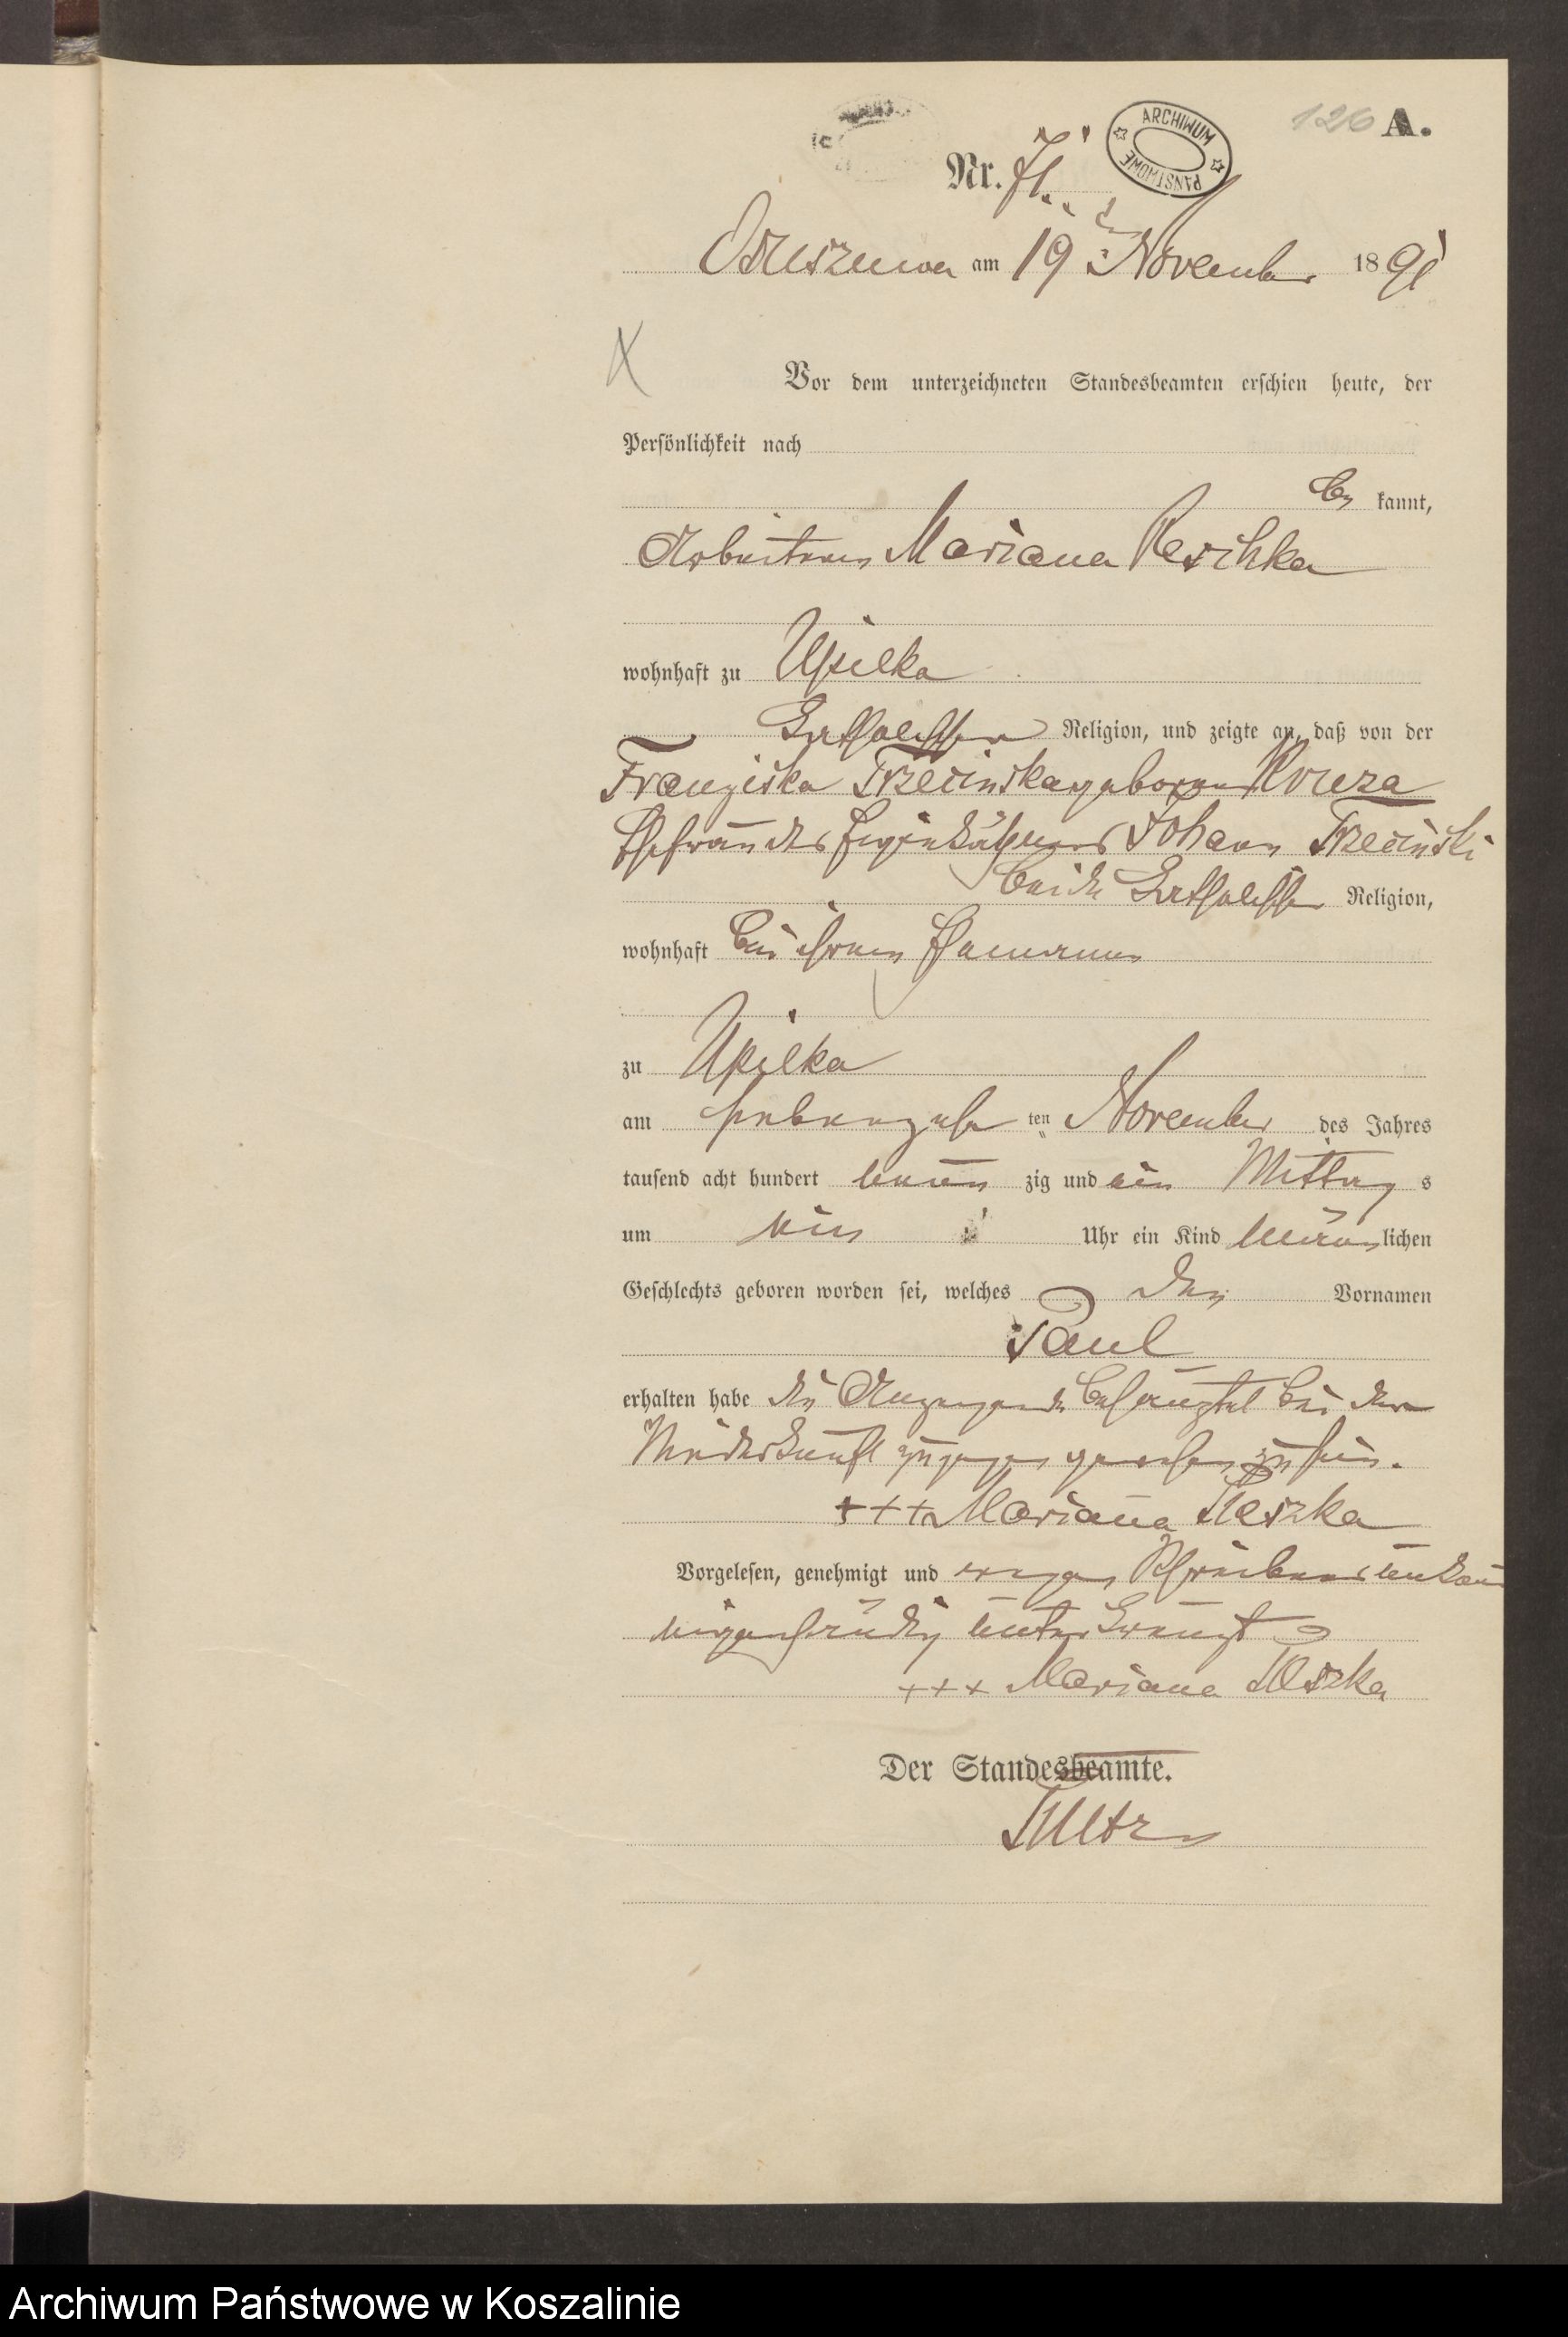 126 A.
ARCHIWUM PAŃSTWOWE
Nr. 71.
am 19 November 1891
Vor dem unterzeichneten Standesbeamten erschien heute, der
Persönlichkeit nach
be kannt,
Mariana
wohnhaft zu Upilka
katholischer Religion, und zeigte an, daß von der
Franziska Trzecinska geborene
Ehefrau des Eigenkäthners Johann Trzecinski
beide katholischer Religion,
wohnhaft bei ihrem Ehemanne
zu Upilka
am siebenzehn ten November des Jahres
tausend acht hundert neun zig und ein Mittag s
um ein Uhr ein Kind männ lichen
Geschlechts geboren worden sei, welches den Vornamen
Paul
erhalten habe die Anzeigende bei der
Niederkunft zugegen gewesen zu sein.
+++ Mariana Reszka
Vorgelesen, genehmigt und wegen Schreibens
eigenhändig unterkreuzt
+++ Mariana Reszka
Der Standesbeamte.
Archiwum Państwowe w Koszalinie